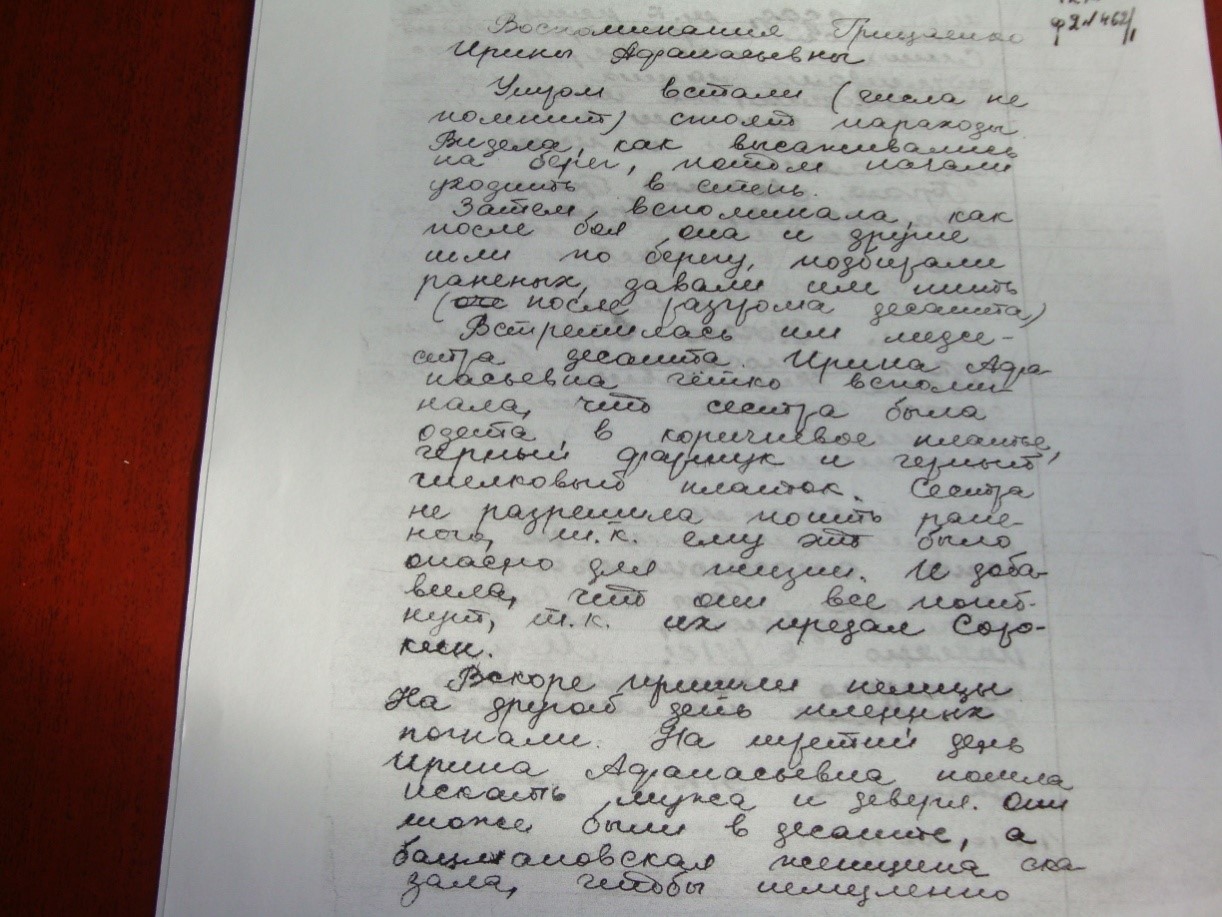 Воспоминания Грищенко
Ирины Афанасьевны
ф 2 №462/1
Утром встали (числа не
помнит) стоят параходы.
Видела, как высаживались
на берег, потом начали
уходить в степь.
Затем вспоминала, как
после боя она и другие
шли по берегу, подбирали
раненых, давали им пить
(после разгрома десанта)
Встретилась им медсе-
стра десанта. Ирина Афа-
насьевна чётко вспоми-
нала, что сестра была
одета в коричневое платье,
черный фартук и черный
шелковый платок. Сестра
не разрешила поить ране-
ного, т.к. ему это было
опасно для жизни. И доба-
вила, что они все погиб-
нут, т.к. их предал Соро-
кин.
Вскоре пришли немцы
На другой день пленных
погнали. На третий день
Ирина Афанасьевна пошла
искать мужа и деверя. Они
тоже были в десанте, а
женщина ска-
зала, чтобы немедленно